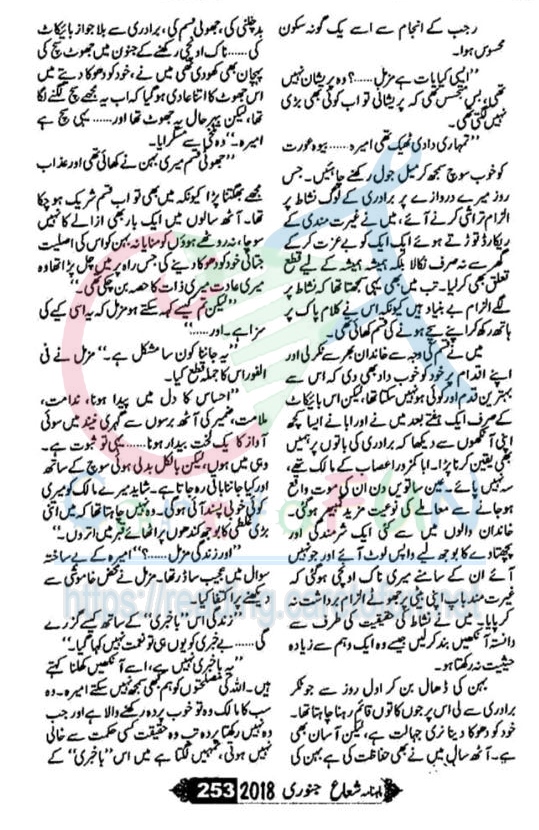 رجب کے انجام سے اسے یک گونہ سکون
محسوس ہوا۔
”ایسی کیا بات ہے مزمل....؟ وہ پریشان نہیں
تھی، بس متجسس تھی کہ پریشانی تو اب کوئی بھی بڑی
نہیں لگتی تھی۔
”تمہاری دادی ٹھیک تھی امیرہ...... بیوہ عورت
کو خوب سوچ سمجھ کر میل جول رکھنے چاہئیں۔ جس
روز میرے دروازے پر برادری کے لوگ نشاط پر
الزام تراشی کرنے آئے، میں نے غیرت مندی کے
ریکارڈ توڑتے ہوئے ایک ایک کو بے عزت کر کے
گھر سے نہ صرف نکالا بلکہ ہمیشہ ہمیشہ کے لیے قطع
تعلق بھی کر لیا۔ تب میں بھی یہی سمجھتا تھا کہ نشاط پر
لگے الزام بے بنیاد ہیں کیونکہ اس نے کلام پاک پر
ہاتھ رکھ کر اپنے سچے ہونے کی قسم کھائی تھی۔
میں نے قسم کی وجہ سے خاندان بھر سے ٹکر لی اور
اپنے اقدام پر خود کو خوب داد بھی دی کہ اس سے
بہترین قدم اور کوئی ہو نہیں سکتا تھا، لیکن اس بائیکاٹ
کے صرف ایک ہفتے بعد میں نے اور ابا نے ایسا کچھ
اپنی آنکھوں سے دیکھا کہ برادری کی باتوں پر ہمیں
بھی یقین کرنا پڑا۔ ابا کمزور اعصاب کے مالک تھے،
سہہ نہیں پائے۔ عین ساتویں دن ان کی موت واقع
ہو جانے سے معاملے کی نوعیت مزید گمبھیر ہو گئی۔
خاندان والوں میں سے کئی ایک شرمندگی اور
پچھتاوے کا بوجھ لیے واپس لوٹ آئے اور جو نہیں
آئے ان کے سامنے میری ناک اونچی ہو گئی کہ
غیرت مند باپ اپنی بیٹی پر جھوٹے الزام برداشت نہ
کر پایا۔ میں نے نشاط کی حقیقت کی طرف سے
دانستہ آنکھیں بند کر لیں جیسے وہ ایک وہم سے زیادہ
حیثیت نہ رکھتا ہو۔
بہن کی ڈھال بن کر اول روز سے جو ٹکر
برادری سے لی اس پر جوں کا توں قائم رہنا چاہتا تھا۔
خود کو دھوکا دینا نری جہالت ہے، لیکن آسان بھی
ہے۔ آٹھ سال میں نے بھی حفاظت کی ہے بہن کی
بدچلنی کی، جھوٹی قسم کی، برادری سے بلا جواز بائیکاٹ
کی......ناک اونچی رکھنے کے جنون میں جھوٹ سچ کی
پہچان بھی کھو دی تھی میں نے، خود کو دھوکا دیتے میں
اس جھوٹ کا اتنا عادی ہو گیا کہ اب یہ مجھے سچ لگنے لگا
تھا، لیکن بہر حال یہ جھوٹ تھا اور...... یہی سچ ہے
امیرہ۔“ وہ تلخی سے مسکرایا۔
”جھوٹی قسم میری بہن نے کھائی تھی اور عذاب
مجھے بھگتنا پڑا کیونکہ میں بھی تو اب قسم شریک ہو چکا
تھا۔ آٹھ سالوں میں ایک بار بھی ازالے کا نہیں
سوچا، نہ روٹھے ہوؤں کو منایا نہ بہن کو اس کی اصلیت
جتائی خود کو دھوکا دینے کی جس راہ پر میں چل پڑا تھا وہ
میری عادت میری ذات کا حصہ بن چکی تھی۔“
”لیکن تم کیسے کہہ سکتے ہو مزمل کہ یہ اسی کیے کی
سزا ہے۔ اور......“
”یہ جاننا کون سا مشکل ہے۔“ مزمل نے فی
الفور اس کا جملہ قطع کیا۔
”احساس کا دل میں پیدا ہونا، ندامت،
ملامت، ضمیر کی آٹھ برسوں سے گہری نیند میں سوئی
آواز کا یک لخت بیدار ہونا...... یہی تو ثبوت ہے۔
وہی میں ہوں، لیکن بالکل بدلی ہوئی سوچ کے ساتھ
اور کیا جاننا باقی رہ جاتا ہے۔ شاید میرے مالک کو میری
کوئی خوبی پسند آئی ہو گی۔ وہ نہیں چاہتا تھا کہ میں اتنی
بڑی غلطی کا بوجھ کندھوں پر اٹھائے قبر میں اتروں۔“
”اور زندگی مزمل......؟“ امیرہ کے بے ساختہ
سوال میں عجیب سا ڈر تھا۔ مزمل نے محض خاموشی سے
دیکھنے پر اکتفا کیا۔
”زندگی اس ”باخبری“ کے ساتھ کیسے گزرے
گی......بے خبری کو یوں ہی تو نعمت نہیں کہا گیا۔“
”یہ باخبری نہیں ہے، اسے آنکھیں کھلنا کہتے
ہیں۔ اللہ کی مصلحتوں کو ہم کبھی سمجھ نہیں سکتے امیرہ۔ وہ
سب کا مالک وہ تو خوب پردہ رکھنے والا ہے اور جب
وہ نہیں رکھتا پردہ تب وہ حقیقت کسی حکمت سے خالی
نہیں ہوتی، تمہیں لگتا ہے میں اس ”باخبری“ کے
ماہنامہ شعاع جنوری 2018 253